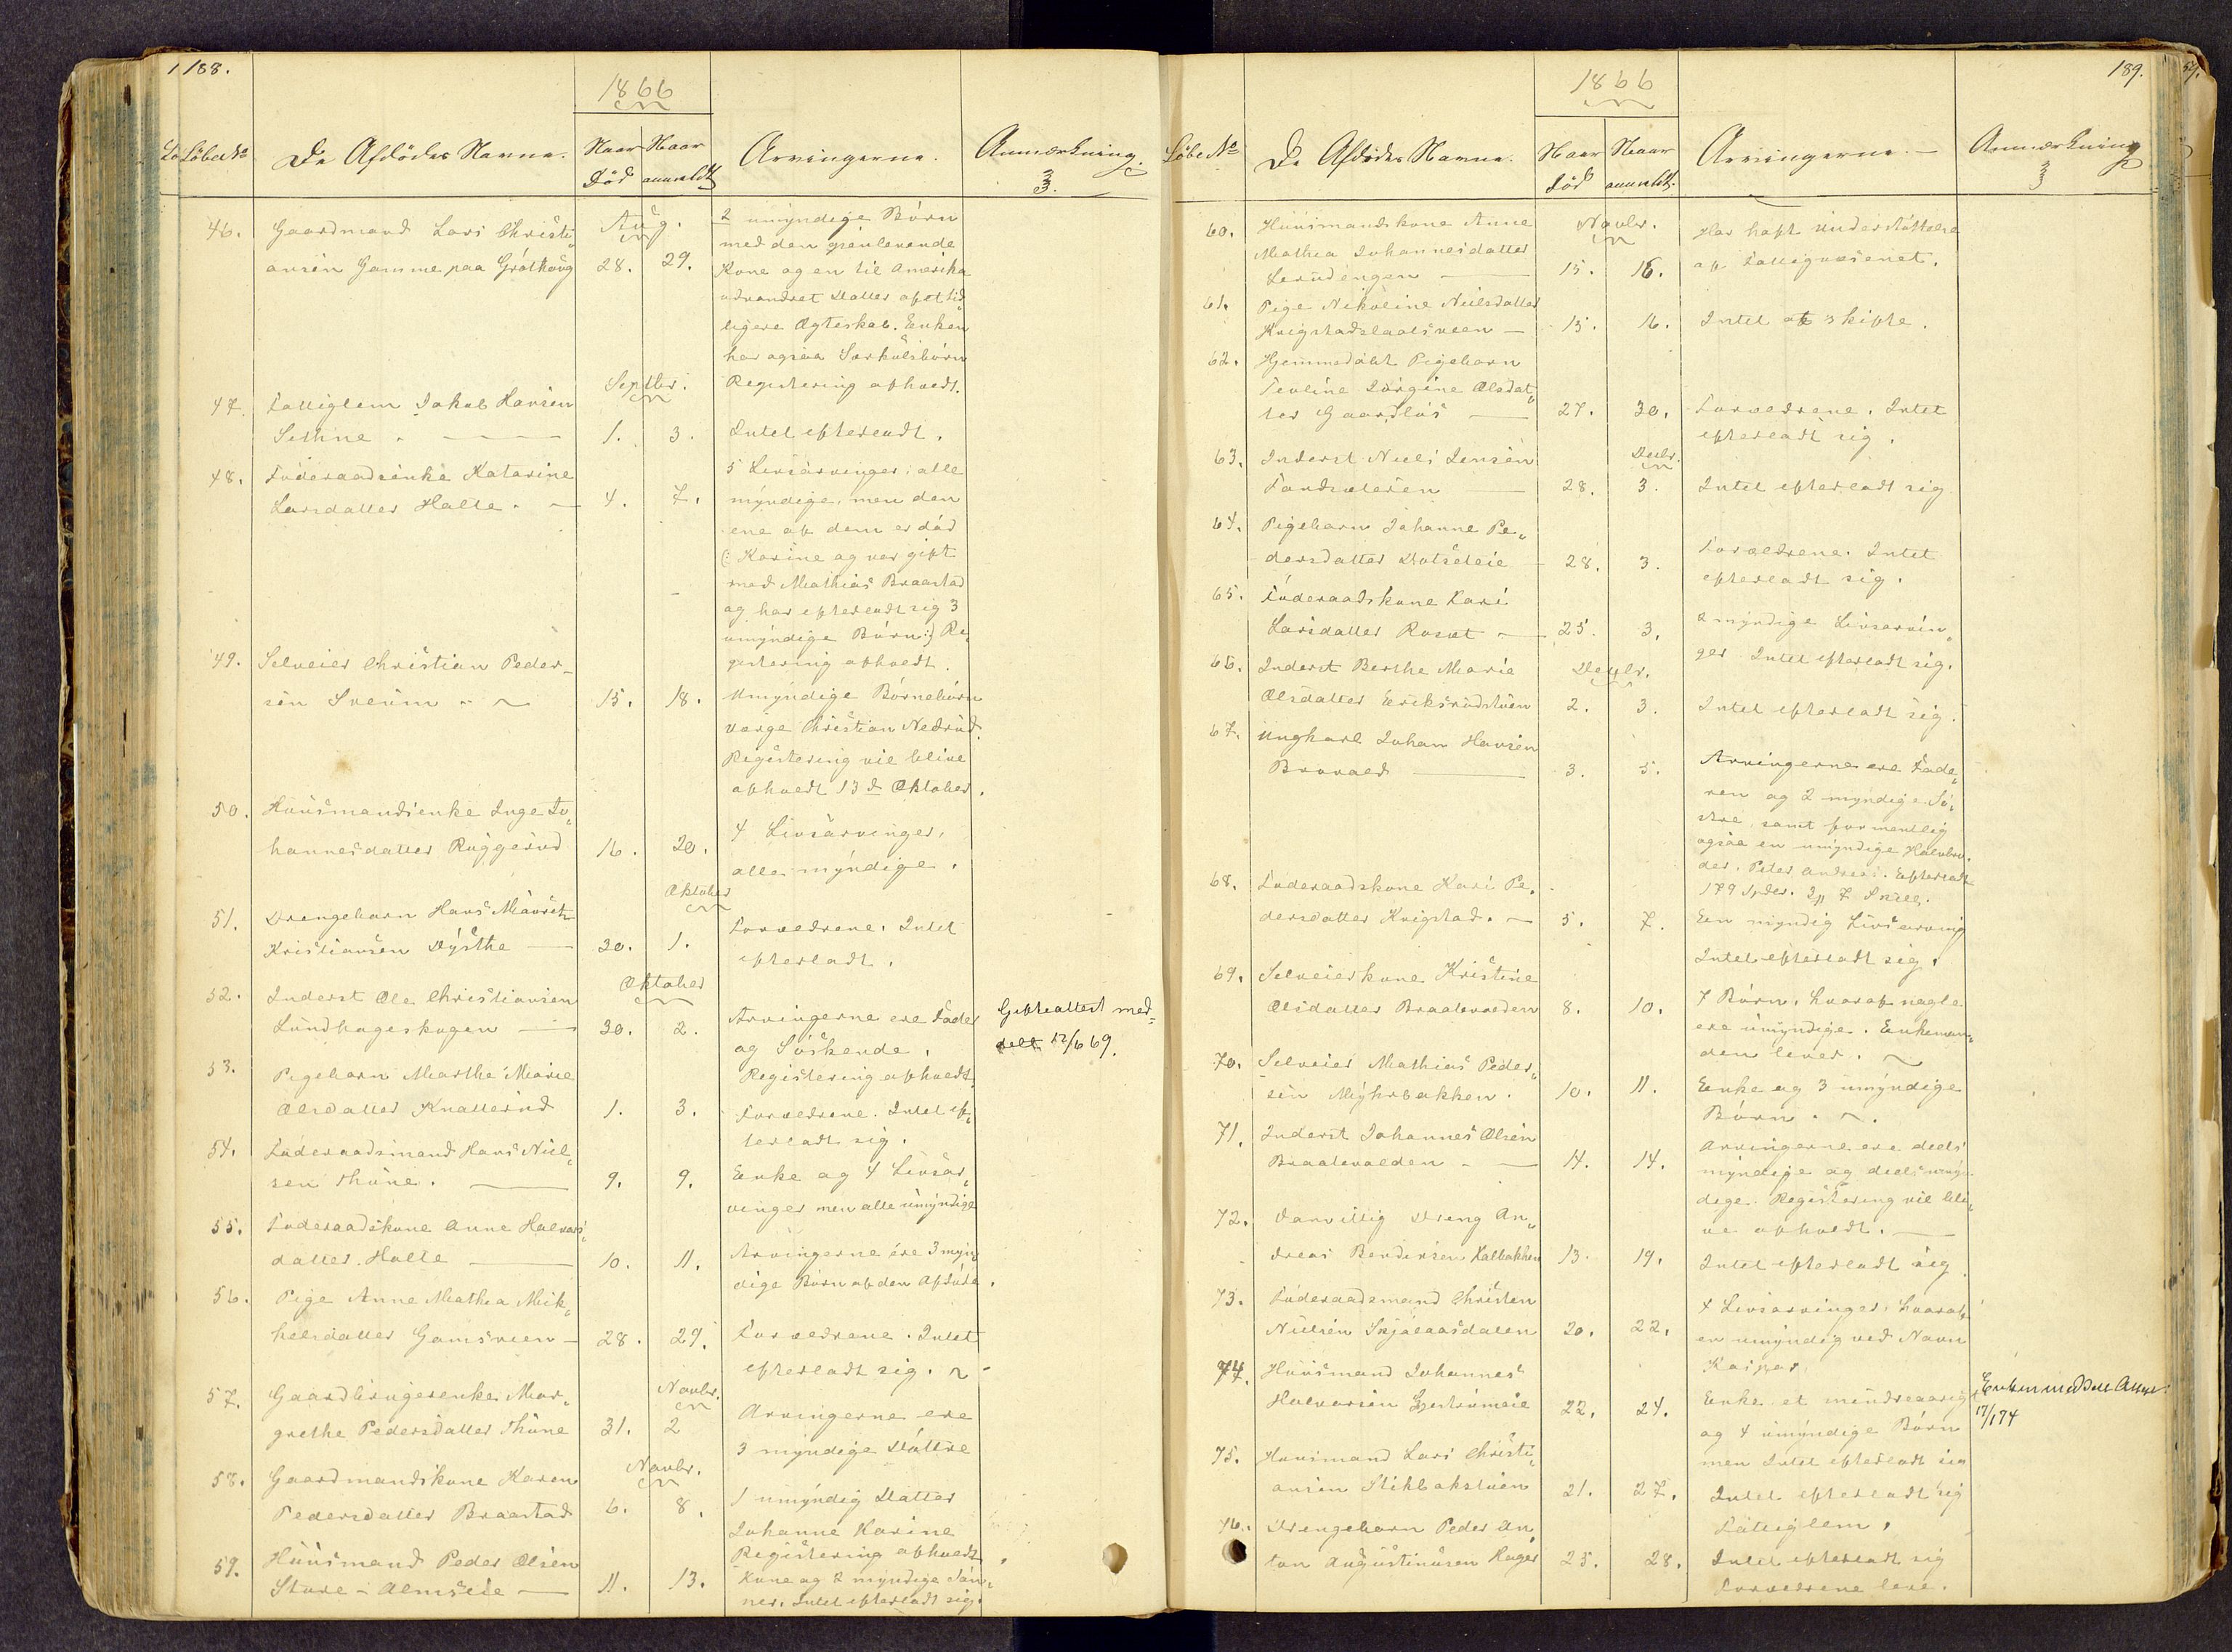 188.
1866
Löbe No
De Afdödes Navne.
Naar Död
Naar anmeldt
Arvingerne.
Anmærkning.
46. Gaardmand Lars Christi-
ansen Gamme paa
Aug.
28. 29.
2 umyndige Börn
med den gjenlevende
Kone og en til Amerika
udvandret Datter af et tid-
ligere Ægteskab. Enken
har ogsaa Særkulsbörn
Registering afholdt.
Septbr.
47. Fattiglem Jakob Hansen
Sethne
1. 3.
Intet efterladt.
48. Föderaadsenke Katarine
Larsdatter Halle.
4. 7.
5 Livsarvinger, alle
myndige, men den
ene af dem er död
(: Karine og var gift
med Mathias Braastad
og har efterladt sig 3
umyndige Börn :) Re-
gistering afholdt.
49. Selveier Christian Peder-
sen Sveum
15. 18.
Umyndige Börnebörn
værge Christian Nedrud.
Registering vil blive
afholdt 13de Oktober.
50. Huusmandsenke Inge Jo-
hannesdatter Ruggerud
16. 20.
4 Livsarvinger,
alle myndige.
Oktober
51. Drengebarn Hans Mauritz
Kristiansen Dysthe
30. 1.
Forældrene. Intet
efterladt.
Oktober
52. Inderst Ole Christiansen
Lundhageskogen
30. 2.
Arvingerne ere Fader
og Söskende.
Registering afholdt.
Gifteattest med-
delt 12/6 69.
53. Pigebarn Marthe Marie
Olsdatter Knatterud
1. 3.
Forældrene. Intet ef-
terladt sig.
54. Föderaadsmand Hans Niel-
sen Thune.
9. 9.
Enke og 4 Livsar-
vinger men alle umyndige
55. Föderaadskone Anne Halvors-
datter Halle
10. 11.
Arvingerne ere 3 myn-
dige Börn af den Afdöde.
56. Pige Anne Mathea Mik-
kelsdatter Gamsveen
28. 29.
Forældrene. Intet
efterladt sig.
Novbr.
57. Gaardbrugerenke Mar-
grethe Pedersdatter Thune
31. 2
Arvingerne ere
3 myndige Döttre
Novbr.
58. Gaardmandskone Karen
Pedersdatter Braastad
6. 8.
1 umyndig Datter
Johanne Karine
Registering afholdt.
59. Huusmand Peder Olsen
Store-Almseie
11. 13.
Kone og 2 myndige Sön-
ner. Intet efterladt sig.
189.
1866
Löbe No
De Afdödes Navne.
Naar död
Naar anmeldt.
Arvingerne.
Anmærkning
60. Huusmandskone Anne
Mathea Johannesdatter
Lerudengen
Novbr.
15. 16.
Har haft understöttelse
af Fattigvæsenet.
61. Pige Nikoline Nielsdatter
Kvigstadslaatsveen
15. 16.
Intet at skifte.
62. Hjemmedöbt Pigebarn
Teoline Jörgine Olsdat-
ter Gaarslös
27. 30.
Forældrene. Intet
efterladt sig.
Decbr.
63. Inderst Niels Jensen
28. 3.
Intet efterladt sig
64. Pigebarn Johanne Pe-
dersdatter Dotseteie
28. 3.
Forældrene. Intet
efterladt sig.
65. Föderaadskone Kari
Larsdatter Roset
25. 3.
2 myndige Livsarvin-
ger Intet efterladt sig.
66. Inderst Berthe Marie
Olsdatter Eriksrudstuen
Decbr.
2. 3.
Intet efterladt sig.
67. Ungkarl Johan Hansen
Brovold
3. 5.
Arvingerne ere Fade-
ren og 2 myndige Sö-
stre, samt formentlig
ogsaa en umyndige Halvbro-
der, Peter Andreas. Efterladt
179 Spdr. 3 " 7 Skill.
68. Föderaadskone Kari Pe-
dersdatter Kvigstad.
5. 7.
Een myndig Livsarving
Intet efterladt sig.
69. Selveierkone Kristine
Olsdatter Braatevolden
8. 10.
7 Börn, hvoraf nogle
ere umyndige. Enkeman-
den lever.
70. Selveier Mathias Peder-
sen Myhrbakken.
10. 11.
Enke og 3 umyndige
Börn.
71. Inderst Johannes Olsen
Braatevolden
14. 14.
Arvingerne ere deels
myndige og deels umyn-
dige. Registering vil bli-
ve afholdt.
72. Vanvittig Dreng An-
dreas Berdinsen Kalbakken
13. 19.
Intet efterladt sig
73. Föderaadsmand Christen
Nielsen
20. 22.
4 Livsarvinger, hvoraf
en umyndig ved Navn
Kasper.
74. Huusmand Johannes
Halvorsen
22. 24.
Enke et mindreaarig
og 4 umyndige Börn
men Intet efterladt sig
Enken meddelt Attest
17/1 74
75. Huusmand Lars Christi-
ansen Stikbakstuen
21. 27.
Intet efterladt sig
Fattiglem.
76. Drengebarn Peder An-
ton Augustinusen Hager
25. 28.
Intet efterladt sig
Forældrene leve.